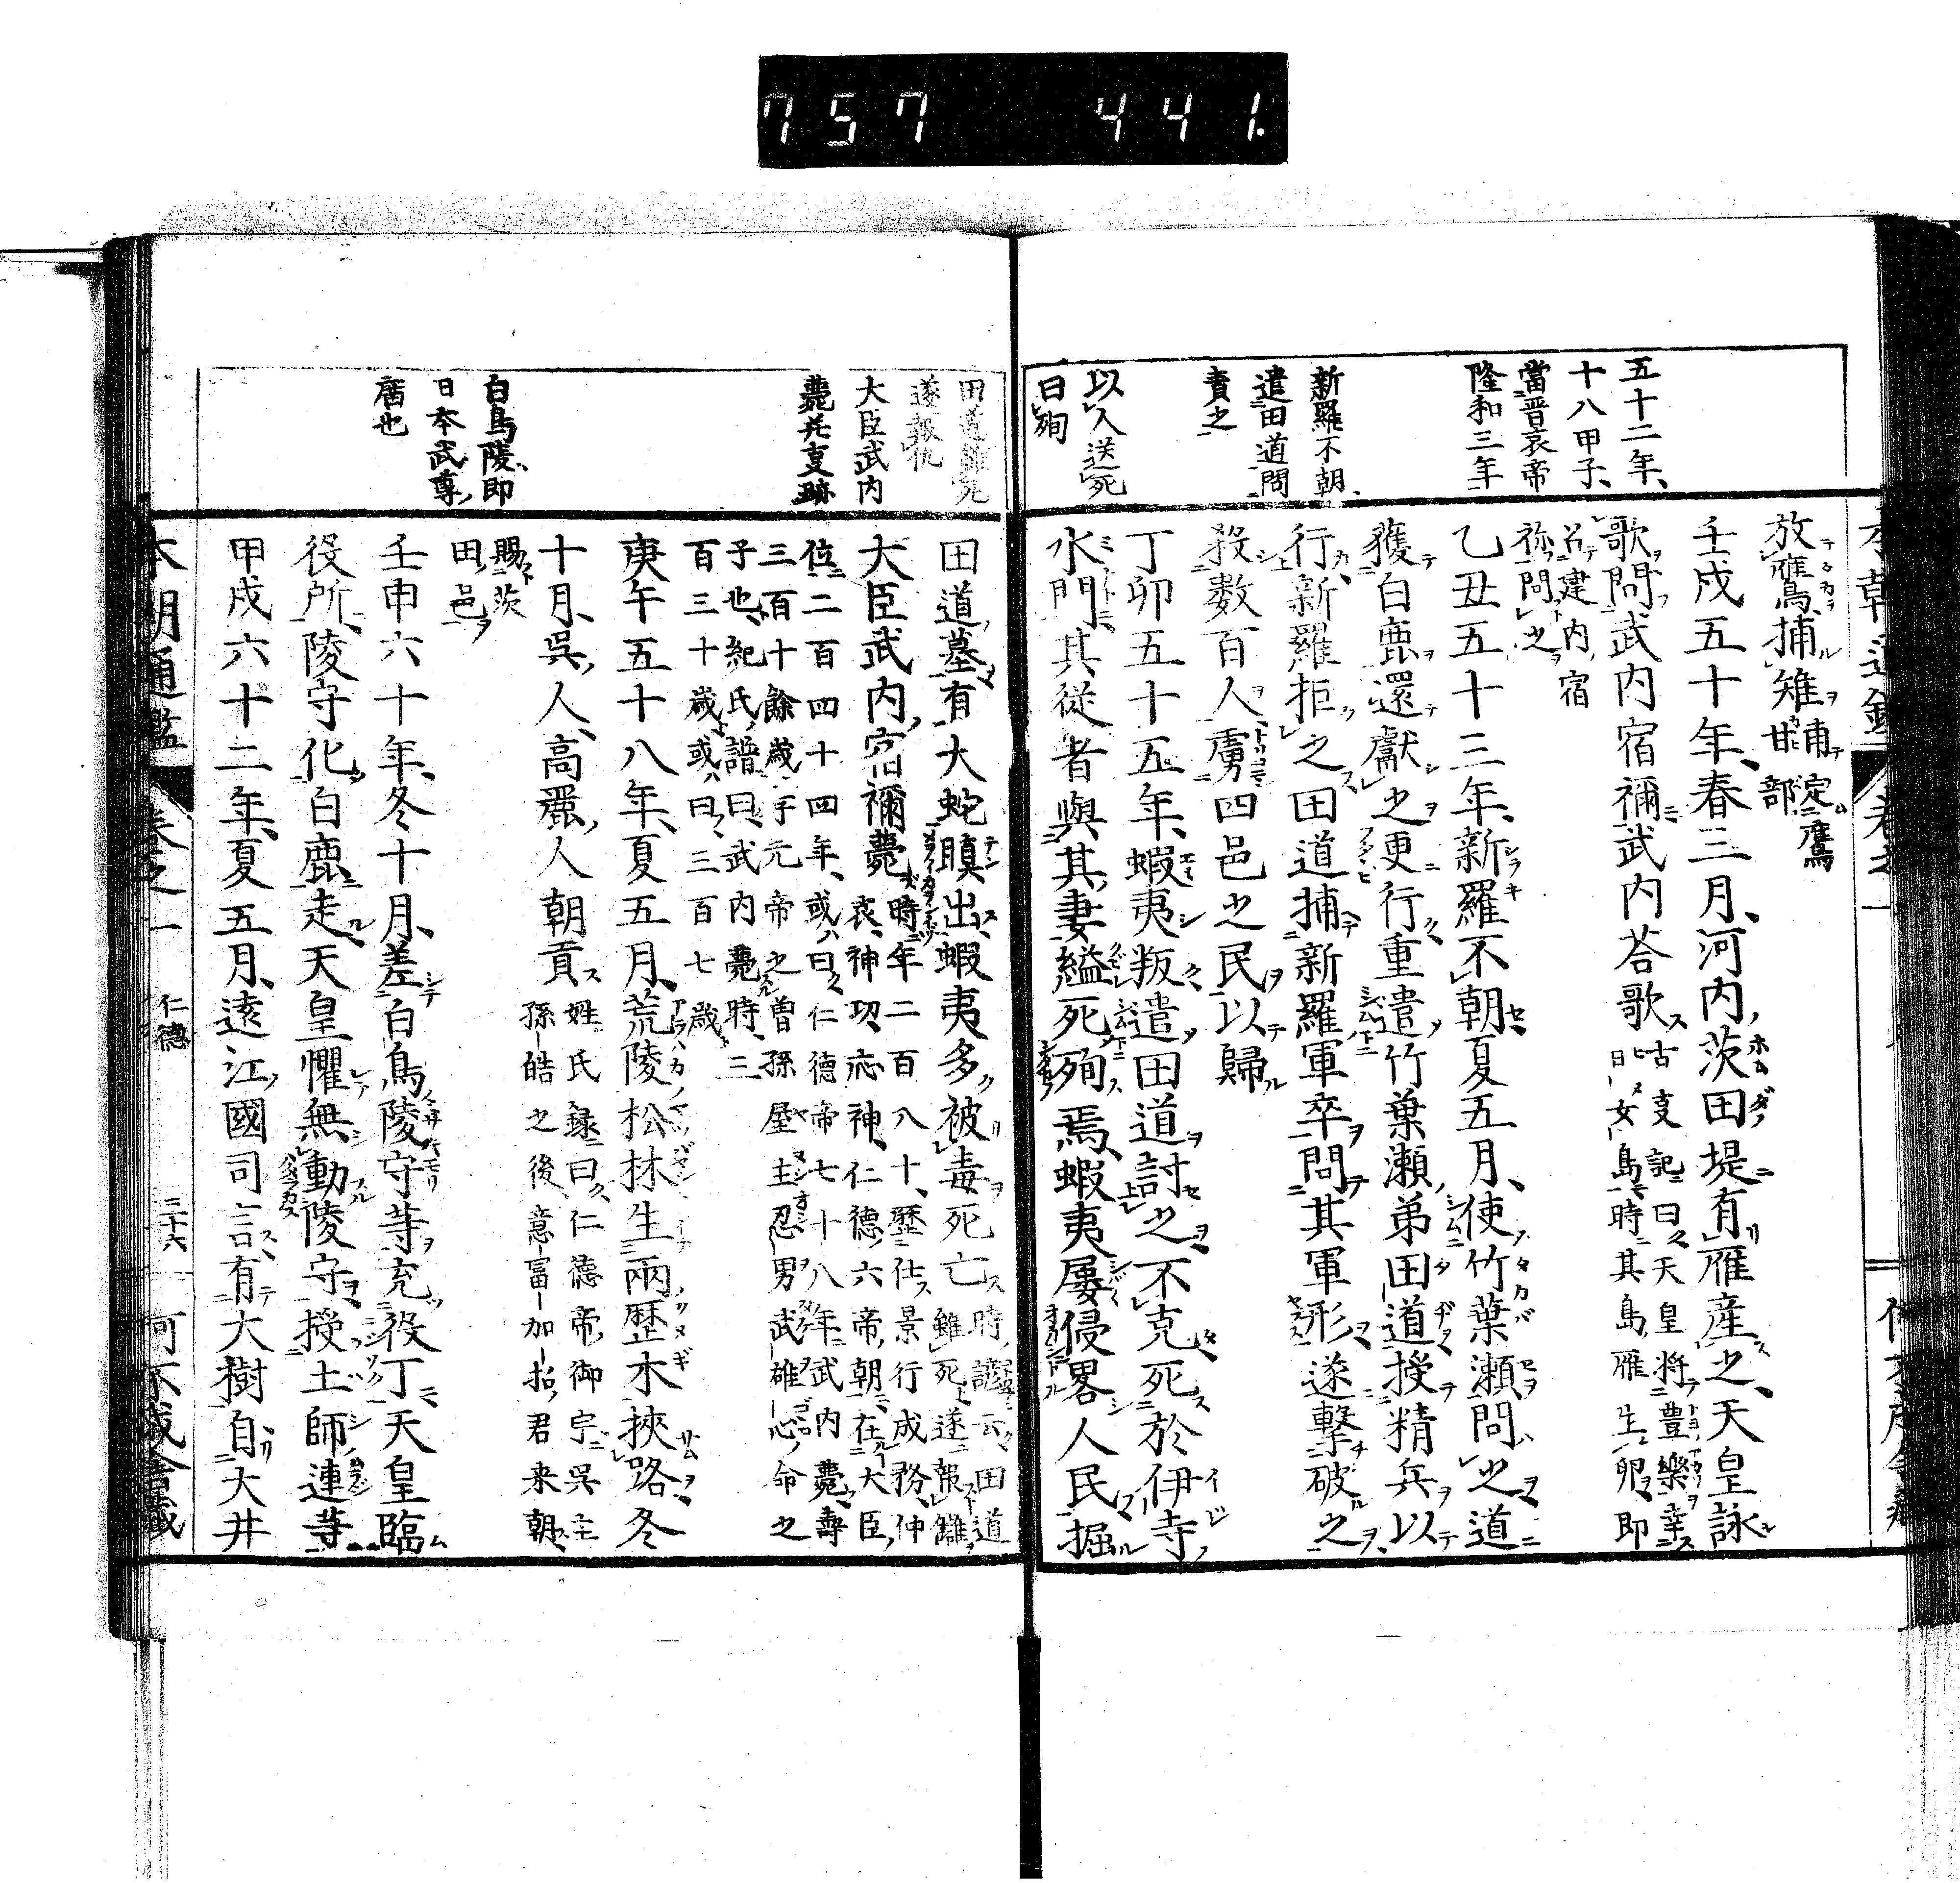 757 441.
五十二年、
十八甲子、
當晋哀帝
隆和三年
新羅不朝、
遣田道問
責之
以人送死
曰殉
放鷹、捕雉
甘部
壬戌五十年、春三月、河内茨田堤有雁産之、天皇詠
歌問武内宿禰武内荅歌
古支記曰天皇将豊樂幸
日女島時其島雁生卵、即
召建内宿
祢問之
乙丑五十三年、新羅不朝夏五月、使竹葉瀬問之道
獲白鹿還獻之更行重遣竹葉瀬弟田道授精兵以
行、新羅拒之田道捕新羅軍卒問其軍形遂擊破之
殺数百人、虜四邑之民以歸
丁卯五十五年、蝦夷叛遣田道討之、不克死於伊寺
水門、其従者與其妻縊死殉焉、蝦夷屢侵畧人民掘
田道雖死
遂報仇
大臣武内
薨并支跡
白鳥陵即
日本武尊
廇也
田道墓有大蛇瞋出蝦夷多被毒死亡
時諺云田道
雖死遂報讎
大臣武内宿禰薨
時年二百八十、歴仕景行成務、仲
哀、神功、応神、仁德六帝、朝在大臣
位二百四十四年、或曰仁德帝七十八年武内薨壽
三百十餘歳孝元帝之曽孫屋主忍男武雄心命之
子也、紀氏譜曰、武内薨時、三
百三十歳或曰、三百七歳
庚午五十八年、夏五月、荒陵松林生兩歷木挾路冬
十月、呉人、高麗人朝貢
姓氏録曰仁德帝御宇呉主
孫皓之後意富加招君来朝、
賜茨
田邑
壬申六十年、冬十月、差白鳥陵守等充役丁天皇臨
役所、陵守化白鹿走天皇懼無動陵守授土師連等
甲戌六十二年、夏五月、遠江國司言有大樹自大井
本朝通鑑
卷之一
仁德
三十六